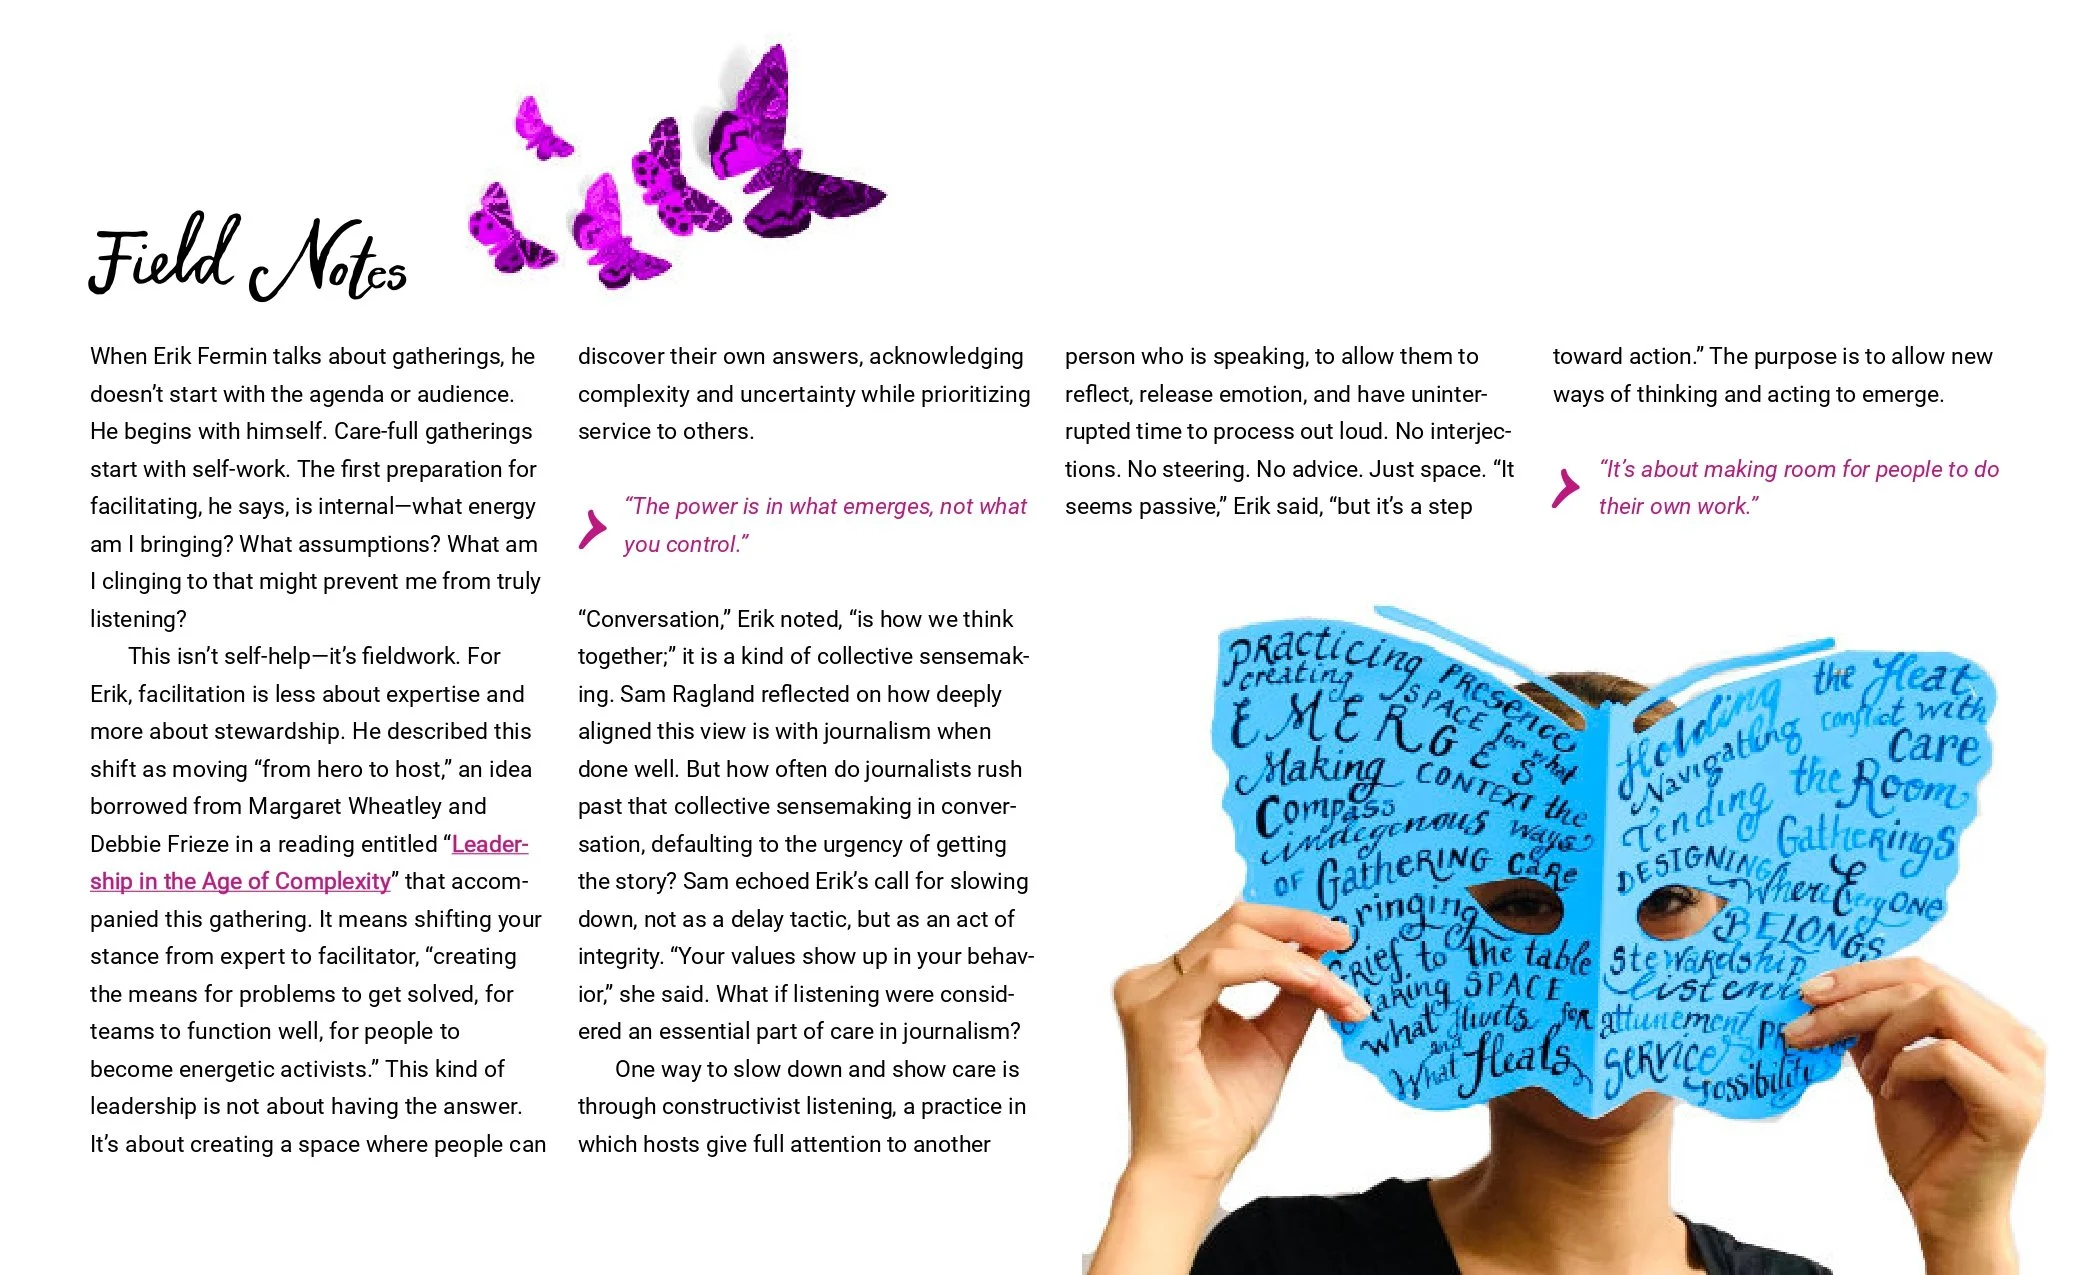 Field Notes
When Erik Fermin talks about gatherings, he
doesn’t start with the agenda or audience.
He begins with himself. Care-full gatherings
start with self-work. The first preparation for
facilitating, he says, is internal—what energy
am I bringing? What assumptions? What am
I clinging to that might prevent me from truly
listening?
This isn’t self-help—it’s fieldwork. For
Erik, facilitation is less about expertise and
more about stewardship. He described this
shift as moving “from hero to host,” an idea
borrowed from Margaret Wheatley and
Debbie Frieze in a reading entitled “Leader-
ship in the Age of Complexity” that accom-
panied this gathering. It means shifting your
stance from expert to facilitator, “creating
the means for problems to get solved, for
teams to function well, for people to
become energetic activists.” This kind of
leadership is not about having the answer.
It’s about creating a space where people can
discover their own answers, acknowledging
complexity and uncertainty while prioritizing
service to others.
“The power is in what emerges, not what
you control.”
“Conversation,” Erik noted, “is how we think
together;” it is a kind of collective sensemak-
ing. Sam Ragland reflected on how deeply
aligned this view is with journalism when
done well. But how often do journalists rush
past that collective sensemaking in conver-
sation, defaulting to the urgency of getting
the story? Sam echoed Erik’s call for slowing
down, not as a delay tactic, but as an act of
integrity. “Your values show up in your behav-
ior,” she said. What if listening were consid-
ered an essential part of care in journalism?
One way to slow down and show care is
through constructivist listening, a practice in
which hosts give full attention to another
person who is speaking, to allow them to
reflect, release emotion, and have uninter-
rupted time to process out loud. No interjec-
tions. No steering. No advice. Just space. “It
seems passive,” Erik said, “but it’s a step
toward action.” The purpose is to allow new
ways of thinking and acting to emerge.
“It’s about making room for people to do
their own work.”
PRACTICING PRESENCE
creating SPACE for what
EMERGES
Making CONTEXT the
Compass
indigenous ways
OF GATHERING CARE
Bringing
Grief to the table
Making SPACE
for
what Hurts
and
What Heals
Holding the Heat
Navigating conflict with
care
Tending the Room
DESIGNING Gatherings
Where EveryONE
BELONGS
Stewardship
Listening
attunement
SERVICE
Possibility